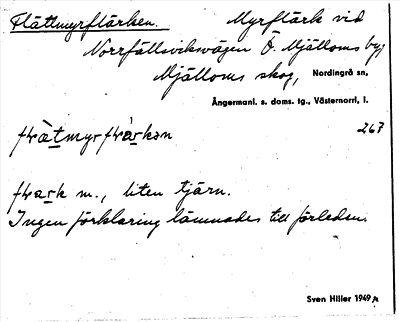 Flättmyrflärken. Myrflärk vid
Norrfällsviksvägen Ö. Mjälloms by,
Mjälloms skog, Nordingrå sn,
Ångermanl. s. doms. tg., Västernorrl, l.
267
flark m., liten tjärn.
Ingen förklaring lämnades till förleden.
Sven Hiller 1949